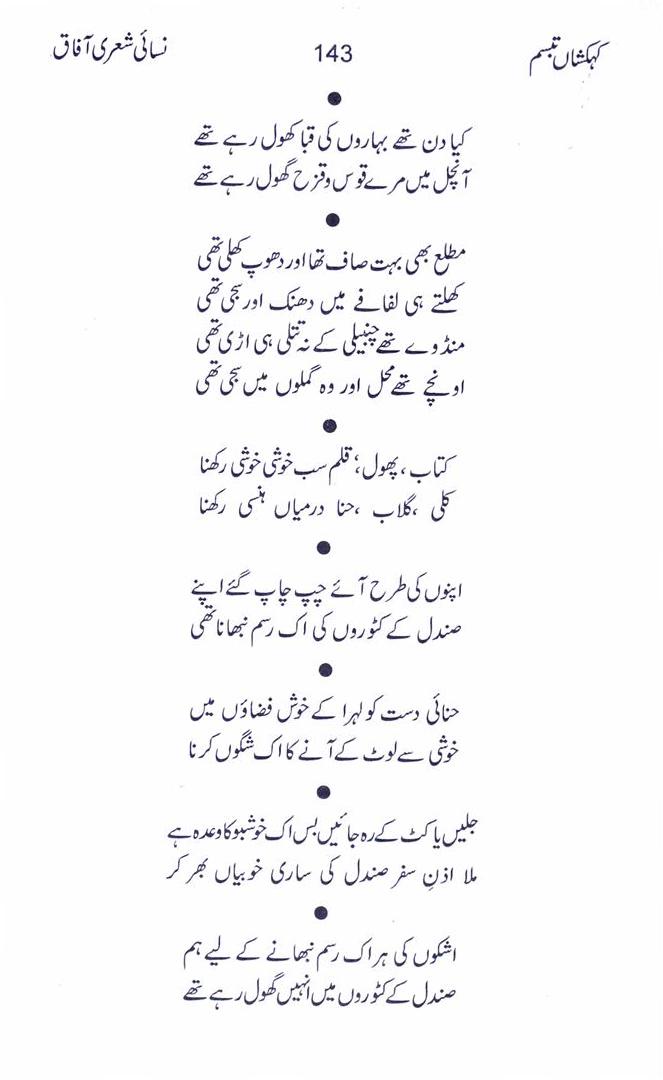 کہکشاں تبسم 143 نسائی شعری آفاق
●
کیا دن تھے بہاروں کی قبا کھول رہے تھے
آنچل میں مرے قوس و قزح گھول رہے تھے
●
مطلع بھی بہت صاف تھا اور دھوپ کھلی تھی
کھلتے ہی لفافے میں دھنک اور سجی تھی
منڈوے تھے چنبیلی کے نہ تتلی ہی اڑی تھی
اونچے تھے محل اور وہ گملوں میں سجی تھی
●
کتاب، پھول،‘ قلم سب خوشی خوشی رکھنا
کلی ،گلاب ،حنا درمیاں ہنسی رکھنا
●
اپنوں کی طرح آئے چپ چاپ گئے اپنے
صندل کے کٹوروں کی اک رسم نبھانا تھی
●
حنائی دست کو لہرا کے خوش فضاؤں میں
خوشی سے لوٹ کے آنے کا اک شگوں کرنا
●
جلیں یا کٹ کے رہ جائیں بس اک خوشبو کا وعدہ ہے
ملا اذنِ سفر صندل کی ساری خوبیاں بھر کر
●
اشکوں کی ہر اک رسم نبھانے کے لیے ہم
صندل کے کٹوروں میں انہیں گھول رہے تھے